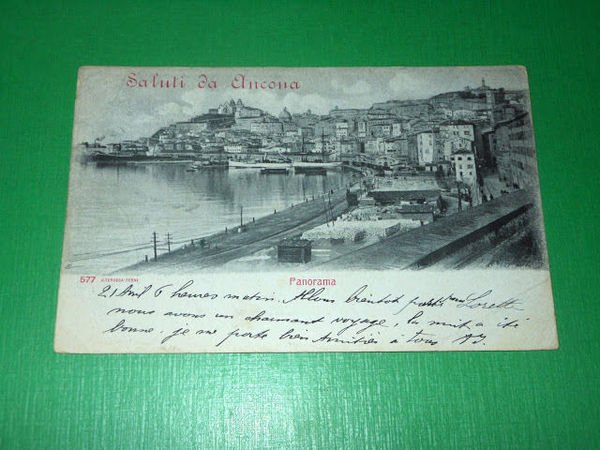 Saluti da Ancona
577 ALTEROCCA TERNI
Panorama
21 Avril 6 heures matin. Allons bientôt partir pour Lorette
nous avons un charmant voyage, la nuit a été
bonne. je me porte bien Amitiés à tous